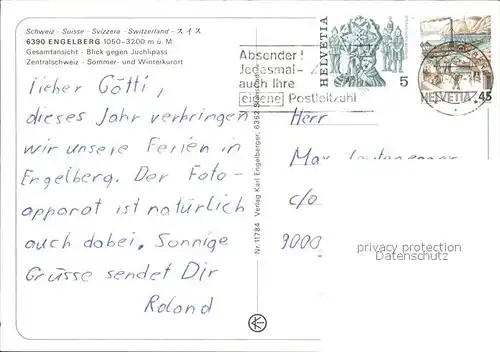 Schweiz - Suisse - Svizzera - Switzerland - スイス
6390 ENGELBERG 1050-3200 m ü. M
Gesamtansicht - Blick gegen Juchlipass
Zentralschweiz - Sommer- und Winterkurort
Lieber Götti,
dieses Jahr verbringen
wir unsere Ferien in
Engelberg. Der Foto-
apparat ist natürlich
auch dabei. Sonnige
Grüsse sendet Dir
Roland
Nr. 11784 Verlag Karl Engelberger, 6362 Stansstad
Absender!
Jedesmal
auch Ihre
eigene Postleitzahl
HELVETIA
5
HELVETIA 45
Herr
Max
c/o
9000
privacy protection
Datenschutz